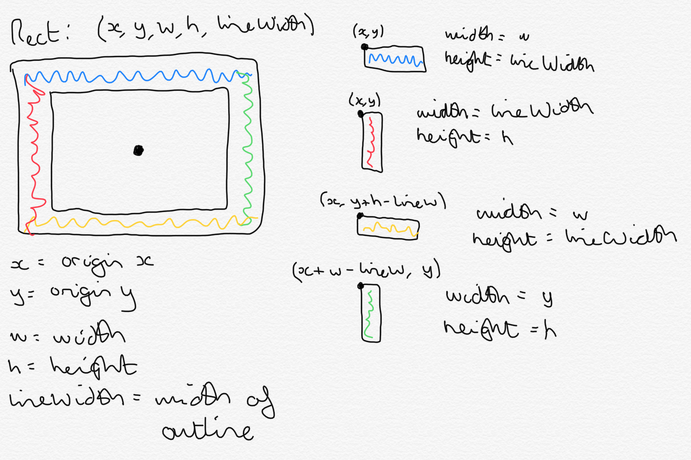 Rect: (x, y, w, h, lineWidth)
x = origin x
y = origin y
w = width
h = height
lineWidth = width of
outline
(x,y)
width = w
height = lineWidth
(x,y)
width = lineWidth
height = h
(x, y+h-lineW)
width = w
height = lineWidth
(x+w-lineW, y)
width = y
height = h